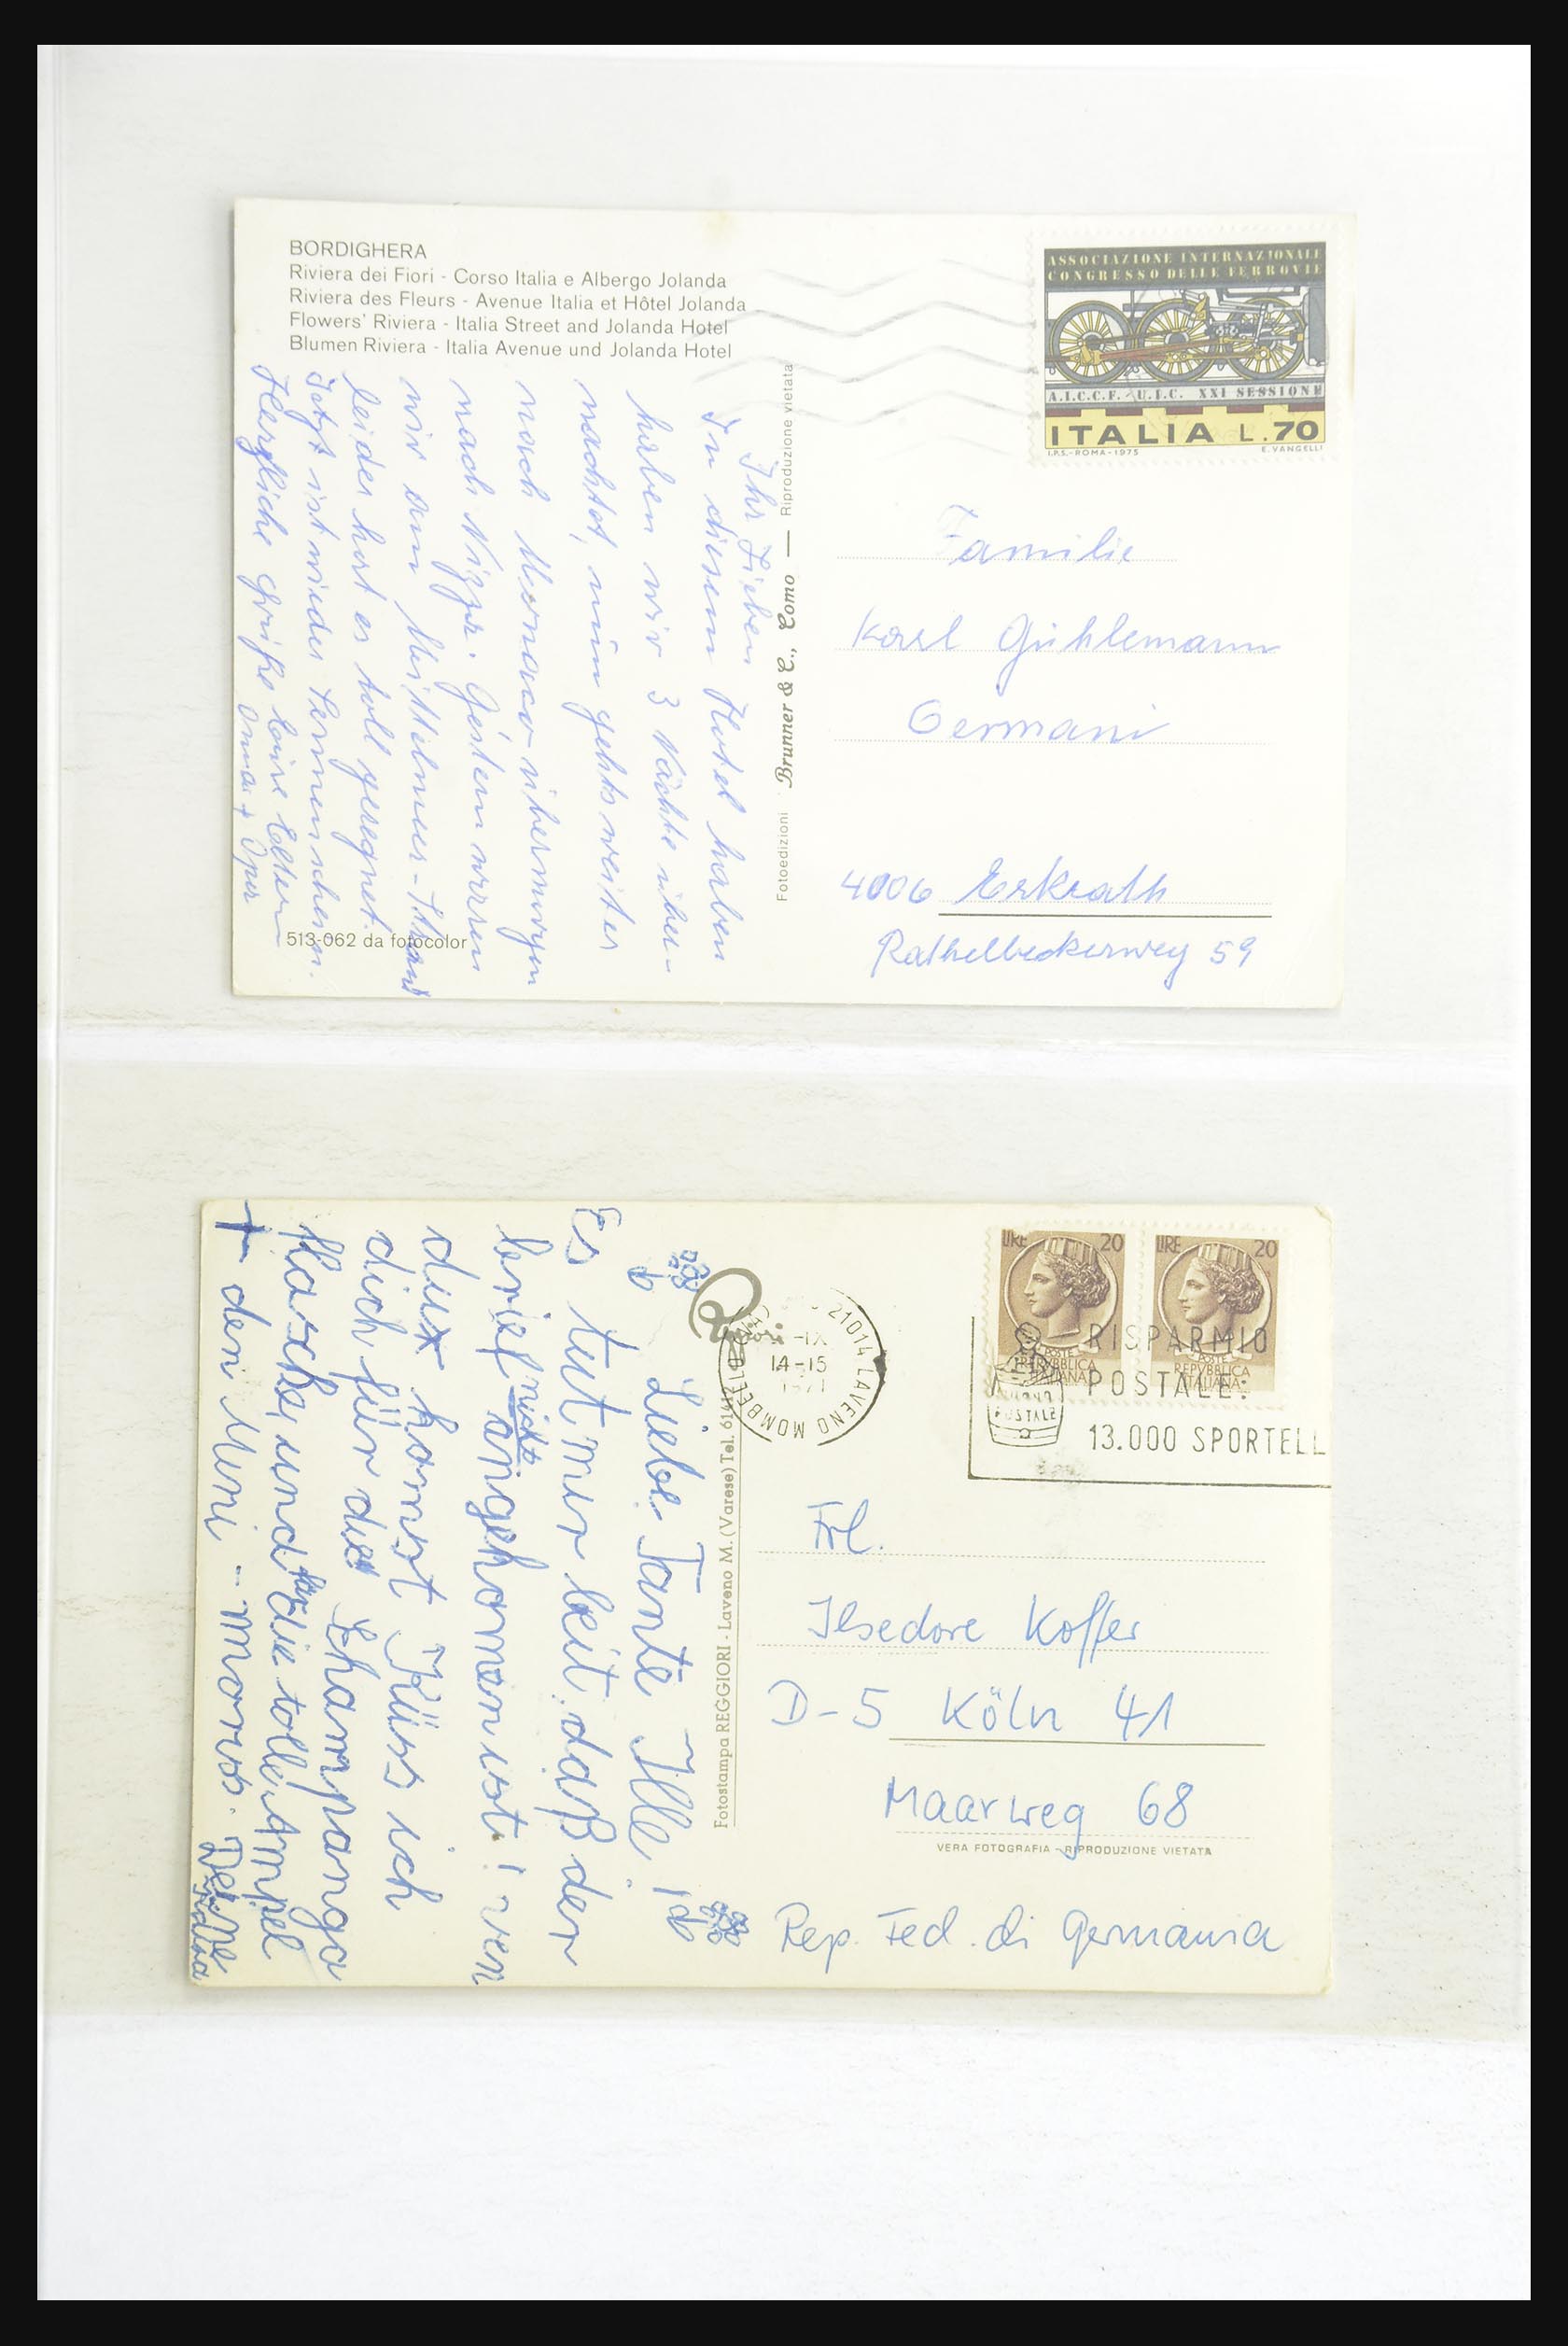 BORDIGHERA
Riviera dei Fiori - Corso Italia e Albergo Jolanda
Riviera des Fleurs - Avenue Italia et Hôtel Jolanda
Flowers' Riviera - Italia Street and Jolanda Hotel
Blumen Riviera - Italia Avenue und Jolanda Hotel
ASSOCIAZIONE INTERNAZIONALE
CONGRESSO DELLE FERROVIE
A.I.C.C.F. - U.I.C. XXI SESSIONE
ITALIA L.70
I.P.S.-ROMA-1975 E. VANGELLI
Ihr Lieben
In diesem Hotel haben
haben wir 3 Nächte über-
nachtet, nun gehts weiter
nach Monaco, übermorgen
nach Nizza. Gestern waren
wir am Mittelmeer-Strand
leider hat es toll geregnet.
Jetzt ist wieder Sonnenschein.
Herzliche Grüße Eure Eltern
Oma + Opa
513-062 da fotocolor
Fotoedizioni Brunner & C., Como — Riproduzione vietata
Familie
Karl Gühlemann
Germani
4006 Erkrath
Rathelbeckerweg 59
LIRE 20
POSTE
REPVBBLICA
ITALIANA
LIRE 20
POSTE
REPVBBLICA
ITALIANA
21014 LAVENO MOMBELLO
-IX
14-15
1971
RISPARMIO
POSTALE:
13.000 SPORTELL
POSTALE
Liebe Tante Ille!
Es tut mir leit, daß der
brief nicht angekomen ist! wen
du komst Küss ich
dich für die Shampanga
flasche, und für die tolle Ampel
+ den Uni - moros. Deine
Fotostampa REGGIORI - Laveno M. (Varese) Tel.
Frl.
Ilsedore Koffer
D-5 Köln 41
Maarweg 68
VERA FOTOGRAFIA - RIPRODUZIONE VIETATA
Rep. Fed. di Germania